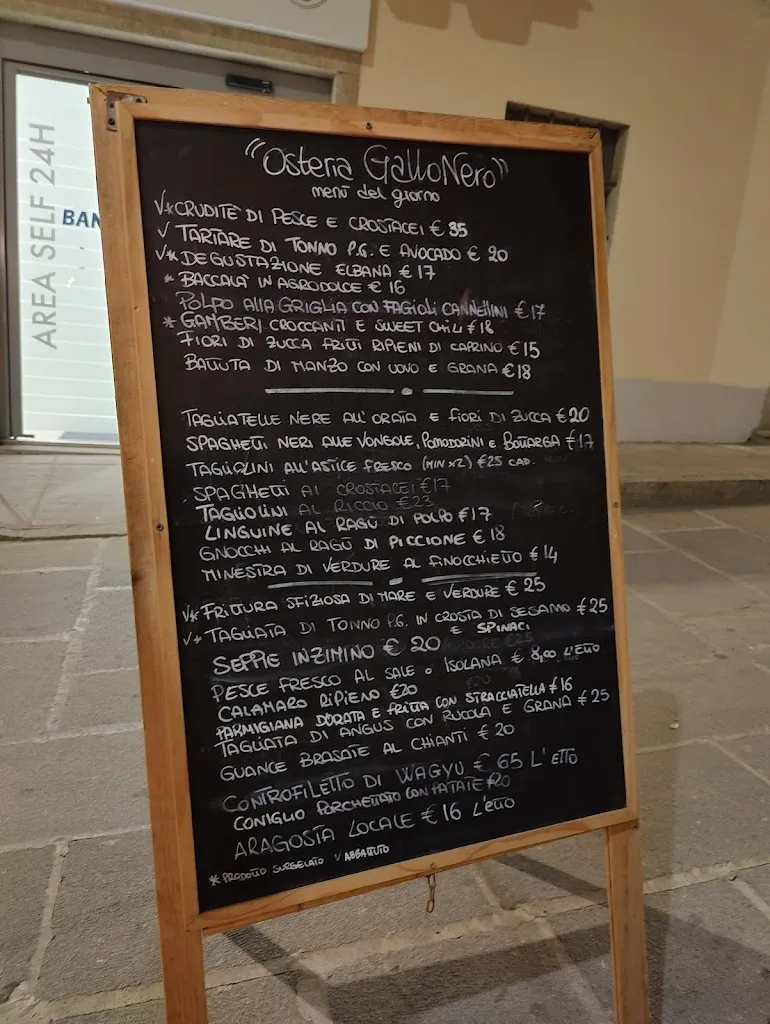 AREA SELF 24H
BAN
"Osteria GalloNero"
menù del giorno
√* CRUDITÈ DI PESCE E CROSTACEI € 35
√ TARTARE DI TONNO P.G. E AVOCADO € 20
√* DEGUSTAZIONE ELBANA € 17
* BACCALÀ IN AGRODOLCE € 16
POLPO ALLA GRIGLIA CON FAGIOLI CANNELLINI € 17
* GAMBERI CROCCANTI E SWEET CHILI € 18
FIORI DI ZUCCA FRITTI RIPIENI DI CAPRINO € 15
BATTUTA DI MANZO CON UOVO E GRANA € 18
TAGLIATELLE NERE ALL'ORATA E FIORI DI ZUCCA € 20
SPAGHETTI NERI ALLE VONGOLE, POMODORINI E BOTTARGA € 17
TAGLIOLINI ALL'ASTICE FRESCO (MIN X2) € 25 CAD.
SPAGHETTI AI CROSTACEI € 17
TAGLIOLINI AL RICCIO € 23
LINGUINE AL RAGÙ DI POLPO € 17
GNOCCHI AL RAGÙ DI PICCIONE € 18
MINESTRA DI VERDURE AL FINOCCHIETTO € 14
√* FRITTURA SFIZIOSA DI MARE E VERDURE € 25
√* TAGLIATA DI TONNO P.G. IN CROSTA DI SESAMO € 25
E SPINACI
SEPPIE INZIMINO € 20
PESCE FRESCO AL SALE O ISOLANA € 8,00 L'ETTO
CALAMARO RIPIENO € 20
PARMIGIANA DORATA E FRITTA CON STRACCIATELLA € 16
TAGLIATA DI ANGUS CON RUCOLA E GRANA € 25
GUANCE BRASATE AL CHIANTI € 20
CONTROFILETTO DI WAGYU € 65 L'ETTO
CONIGLIO PORCHETTATO CON PATATE € 20
ARAGOSTA LOCALE € 16 L'ETTO
* PRODOTTO SURGELATO √ ABBATTUTO